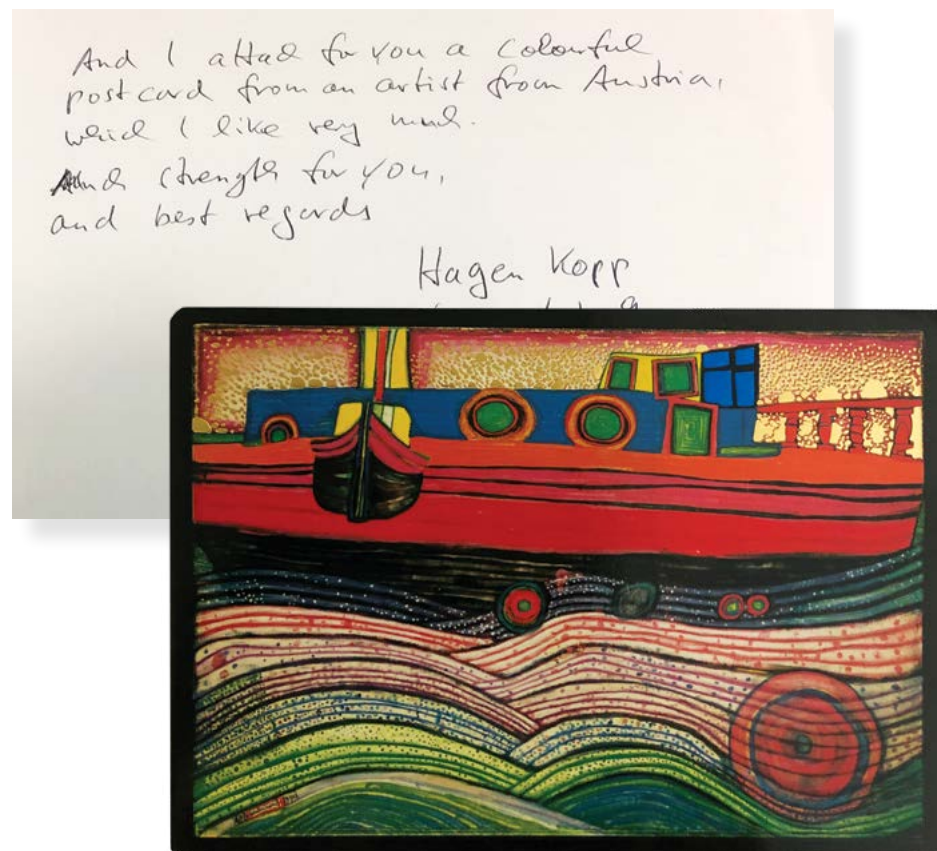 And I attach for you a colourful
postcard from an artist from Austria,
which I like very much.
And strength for you,
and best regards
Hagen Kopp